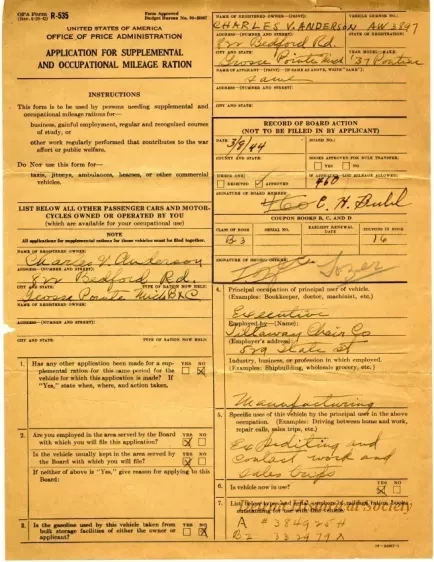 OPA Form R-535
Form Approved
UNITED STATES OF AMERICA
OFFICE OF PRICE ADMINISTRATION
APPLICATION FOR SUPPLEMENTAL
AND OCCUPATIONAL MILEAGE RATION
INSTRUCTIONS
This form is to be used by persons needing supplemental and
occupational mileage rations for—
business, gainful employment, regular and recognized courses
of study, or
other work regularly performed that contributes to the war
effort or public welfare.
Do NOT use this form for—
taxis, jitneys, ambulances, hearses, or other commercial
vehicles.
LIST BELOW ALL OTHER PASSENGER CARS AND MOTOR-
CYCLES OWNED OR OPERATED BY YOU
(which are available for your occupational use)
NOTE
All applications for supplemental rations for these vehicles must be filed together.
NAME OF REGISTERED OWNER:
Charles V. Anderson
ADDRESS—(NUMBER AND STREET):
Bedford Rd.
CITY AND STATE: TYPE OF RATION NOW HELD:
Grosse Pointe Mich B & C
NAME OF REGISTERED OWNER:
ADDRESS—(NUMBER AND STREET):
CITY AND STATE: TYPE OF RATION NOW HELD:
1. Has any other application been made for a sup- YES NO
plemental ration for this same period for the
vehicle for which this application is made? If
"Yes," state when, where, and action taken.
2. Are you employed in the area served by the Board YES NO
with which you will file this application?
Is the vehicle usually kept in the area served by YES NO
the Board with which you will file?
If neither of above is "Yes," give reason for applying to this
Board:
3. Is the gasoline used by this vehicle taken from YES NO
bulk storage facilities of either the owner or
applicant?
NAME OF REGISTERED OWNER—(PRINT): VEHICLE LICENSE NO.:
CHARLES V. ANDERSON AW 3897
ADDRESS—(NUMBER AND STREET): STATE OF REGISTRATION:
Bedford Rd.
CITY AND STATE: YEAR MODEL—MAKE:
Grosse Pointe Mich '37 Pontiac
NAME OF APPLICANT—(PRINT) (IF SAME AS ABOVE, WRITE "SAME"):
Same
ADDRESS—(NUMBER AND STREET):
CITY AND STATE:
RECORD OF BOARD ACTION
(NOT TO BE FILLED IN BY APPLICANT)
DATE: BOARD NO.:
3/9/44
COUNTY AND STATE: BOOKS APPROVED FOR BULK TRANSFER:
YES NO
CHECK ONE: IF APPROVED—MILEAGE ALLOWED:
REJECTED APPROVED 460
SIGNATURE OF BOARD MEMBER:
460
COUPON BOOKS B, C, AND D
CLASS OF BOOK SERIAL NO. EARLIEST RENEWAL DATE COUPONS IN BOOK
B3 16
SIGNATURE OF ISSUING OFFICER:
4. Principal occupation of principal user of vehicle.
(Examples: Bookkeeper, doctor, machinist, etc.)
Executive
Employed by—(Name):
Chair Co
(Employer's address):
State St
Industry, business, or profession in which employed.
(Examples: Shipbuilding, wholesale grocery, etc.)
Manufacturing
5. Specific uses of this vehicle by the principal user in the above
occupation. (Examples: Driving between home and work,
repair calls, sales trips, etc.)
Expediting and
Contact work and
sales trips
6. Is vehicle now in use? YES NO
7. List below types and serial numbers of mileage ration books
outstanding for use with this vehicle.
Society
A # 384925H
B2 332479A